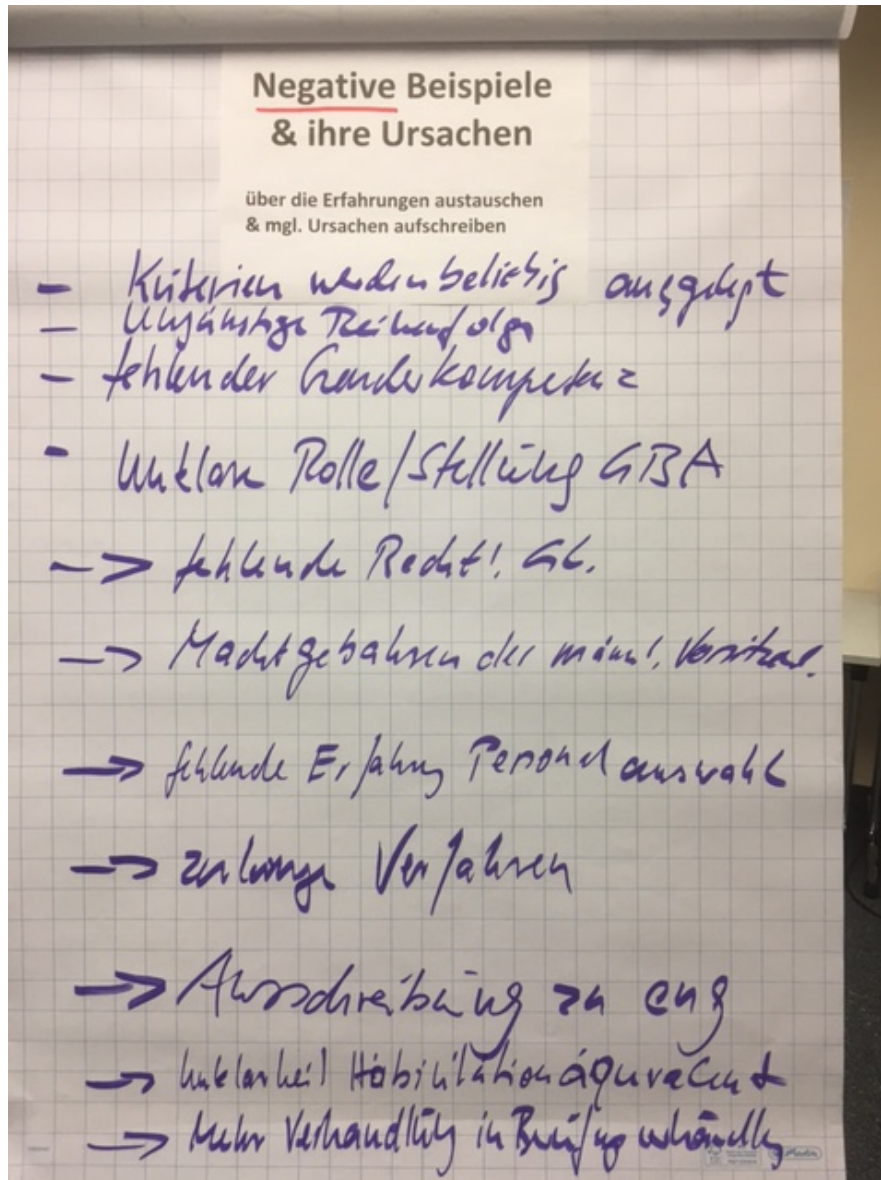 Negative Beispiele
& ihre Ursachen
über die Erfahrungen austauschen
& mgl. Ursachen aufschreiben
- Kriterien werden beliebig ausgelegt
- Ungünstige Reihenfolge
- fehlender Genderkompetenz
- Unklare Rolle/Stellung GBA
-> fehlende Rechtl. GL.
-> Machtgebahren der männl. Vorsitzend.
-> fehlende Erfahrung Personalauswahl
-> zu lange Verfahren
-> Ausschreibung zu eng
-> Unklarheit Habilitationäquivalent
-> Mehr Verhandlung in